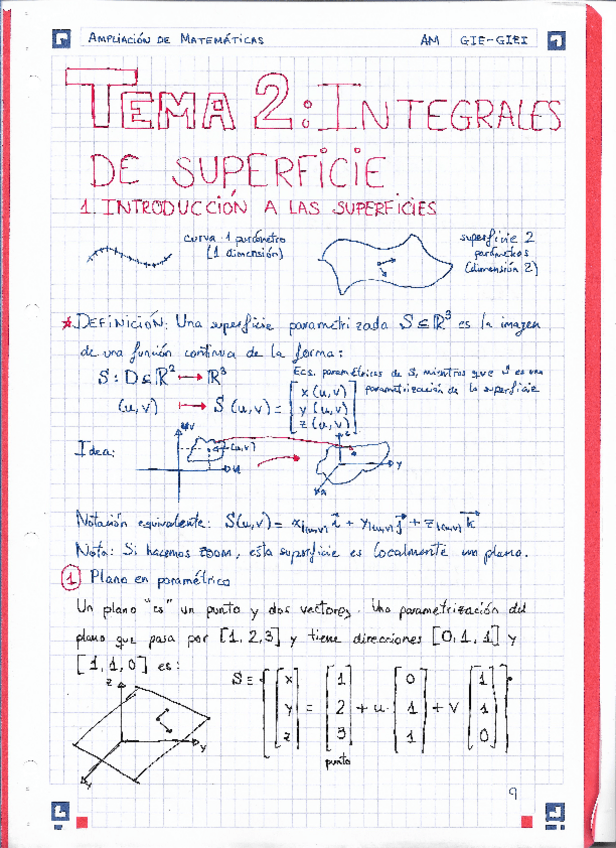 AMPLIACIÓN DE MATEMÁTICAS AM GIE-GIERI
TEMA 2: INTEGRALES
DE SUPERFICIE
1. INTRODUCCIÓN A LAS SUPERFICIES
curva 1 parámetro
(1 dimensión)
superficie 2
parámetros
(dimensión 2)
* DEFINICIÓN: Una superficie parametrizada S⊆ℝ³ es la imagen
de una función continua de la forma:
S: D⊆ℝ² ⟼ ℝ³
Ecs. paramétricas de S, mientras que S es una
parametrización de la superficie
(u,v) ⟼ S(u,v) = [x(u,v) y(u,v) z(u,v)]
Idea:
v
(u,v)
u
z
y
x
Notación equivalente: S(u,v) = x(u,v) i + y(u,v) j + z(u,v) k
Nota: Si hacemos zoom, esta superficie es localmente un plano.
1 Plano en paramétrico
Un plano "es" un punto y dos vectores. Una parametrización del
plano que pasa por [1,2,3] y tiene direcciones [0,1,1] y
[1,1,0] es:
S ≡ { [x y z] = [1 2 3] + u · [0 1 1] + v [1 1 0] }
punto
z
y
9